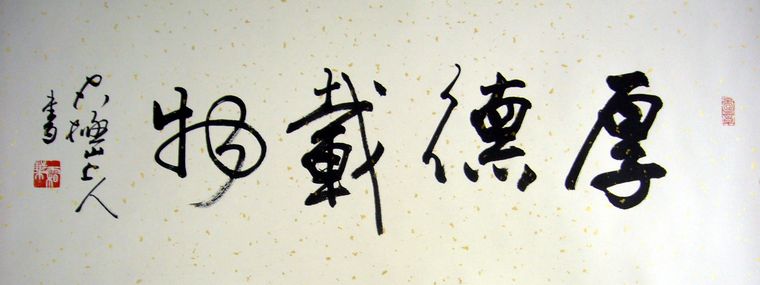 厚德載物
山上人
書